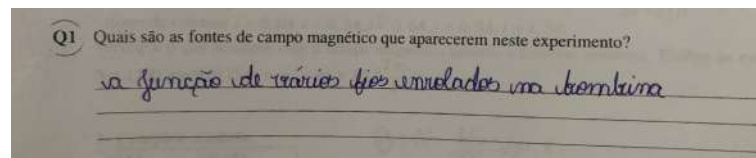 Q1 Quais são as fontes de campo magnético que aparecerem neste experimento?
a junção de vários fios enrolados na bombina